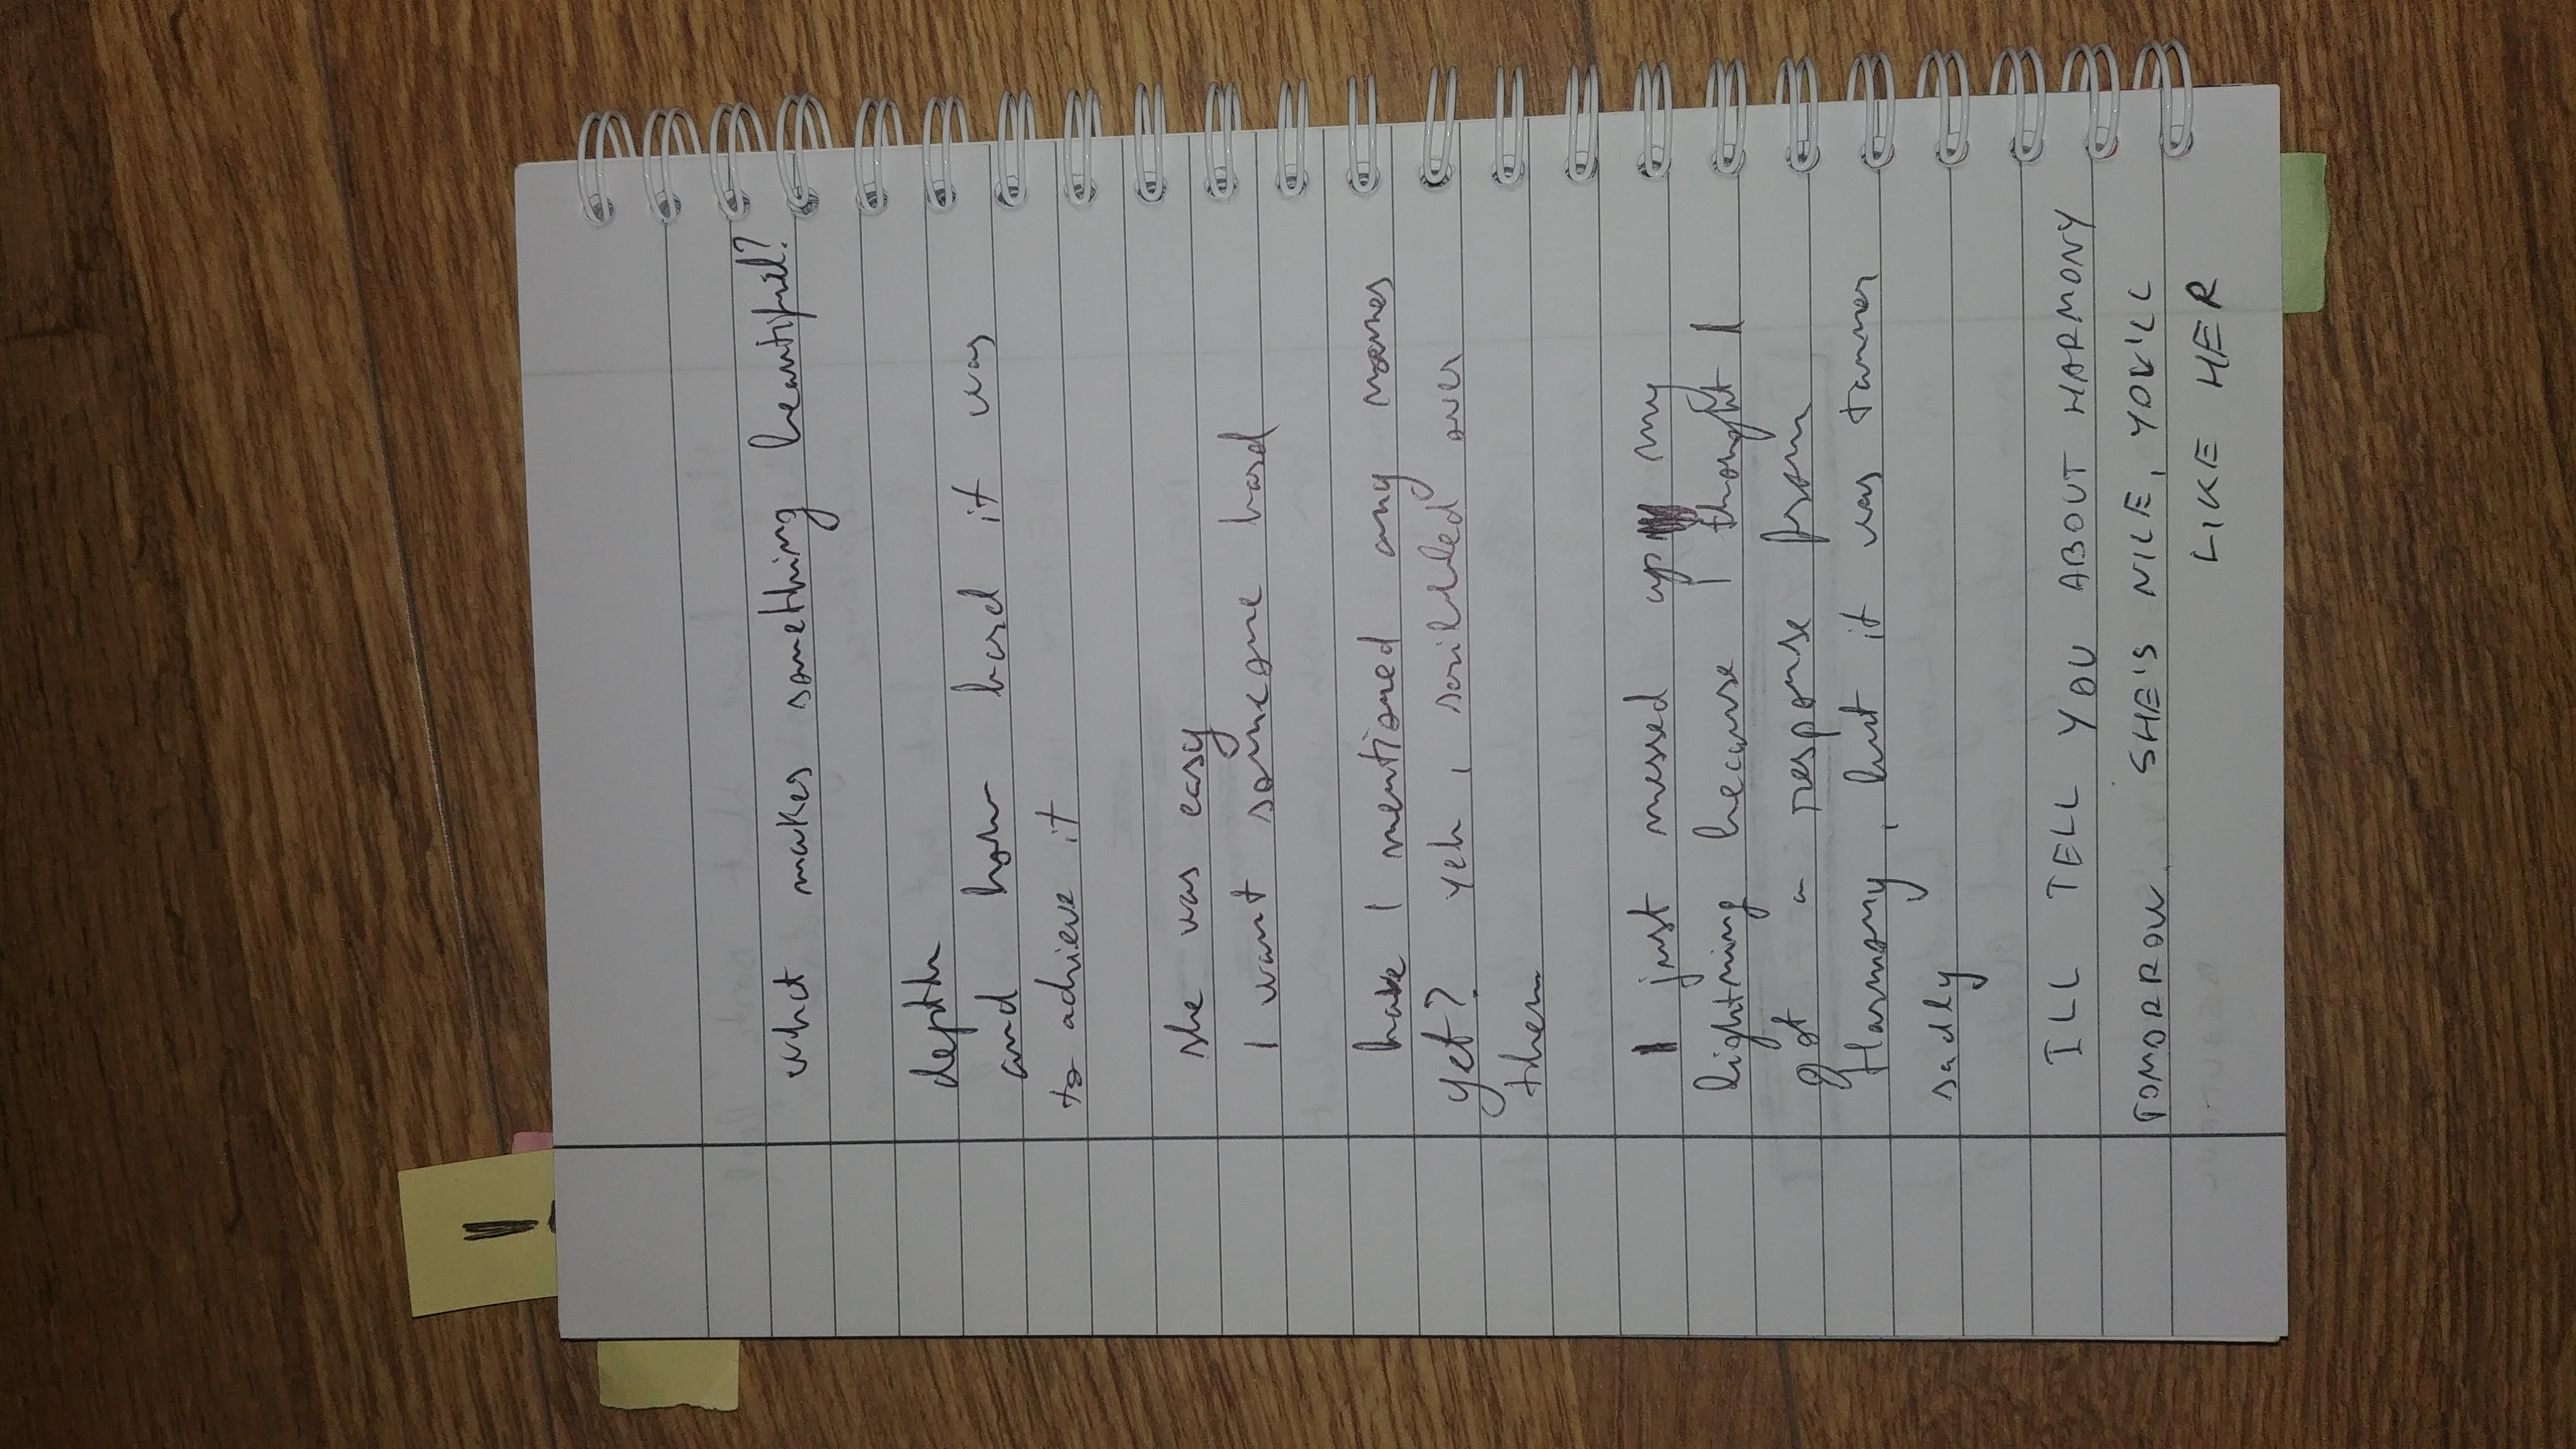 !
what makes something beautiful?
depth
and how hard it was
to achieve it
she was easy
I want someone hard
have I mentioned any names
yet? yeh, scribbled over
them
I just messed up my
lightning because I thought I
got a response from
Harmony, but it was tanner
sadly
ILL TELL YOU ABOUT HARMONY
TOMORROW. SHE'S NICE, YOU'LL
LIKE HER